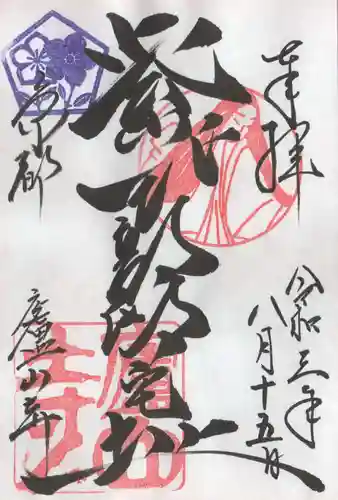 奉拝
令和三年
八月十五日
紫式部邸宅址
京都
廬山寺
廬山寺